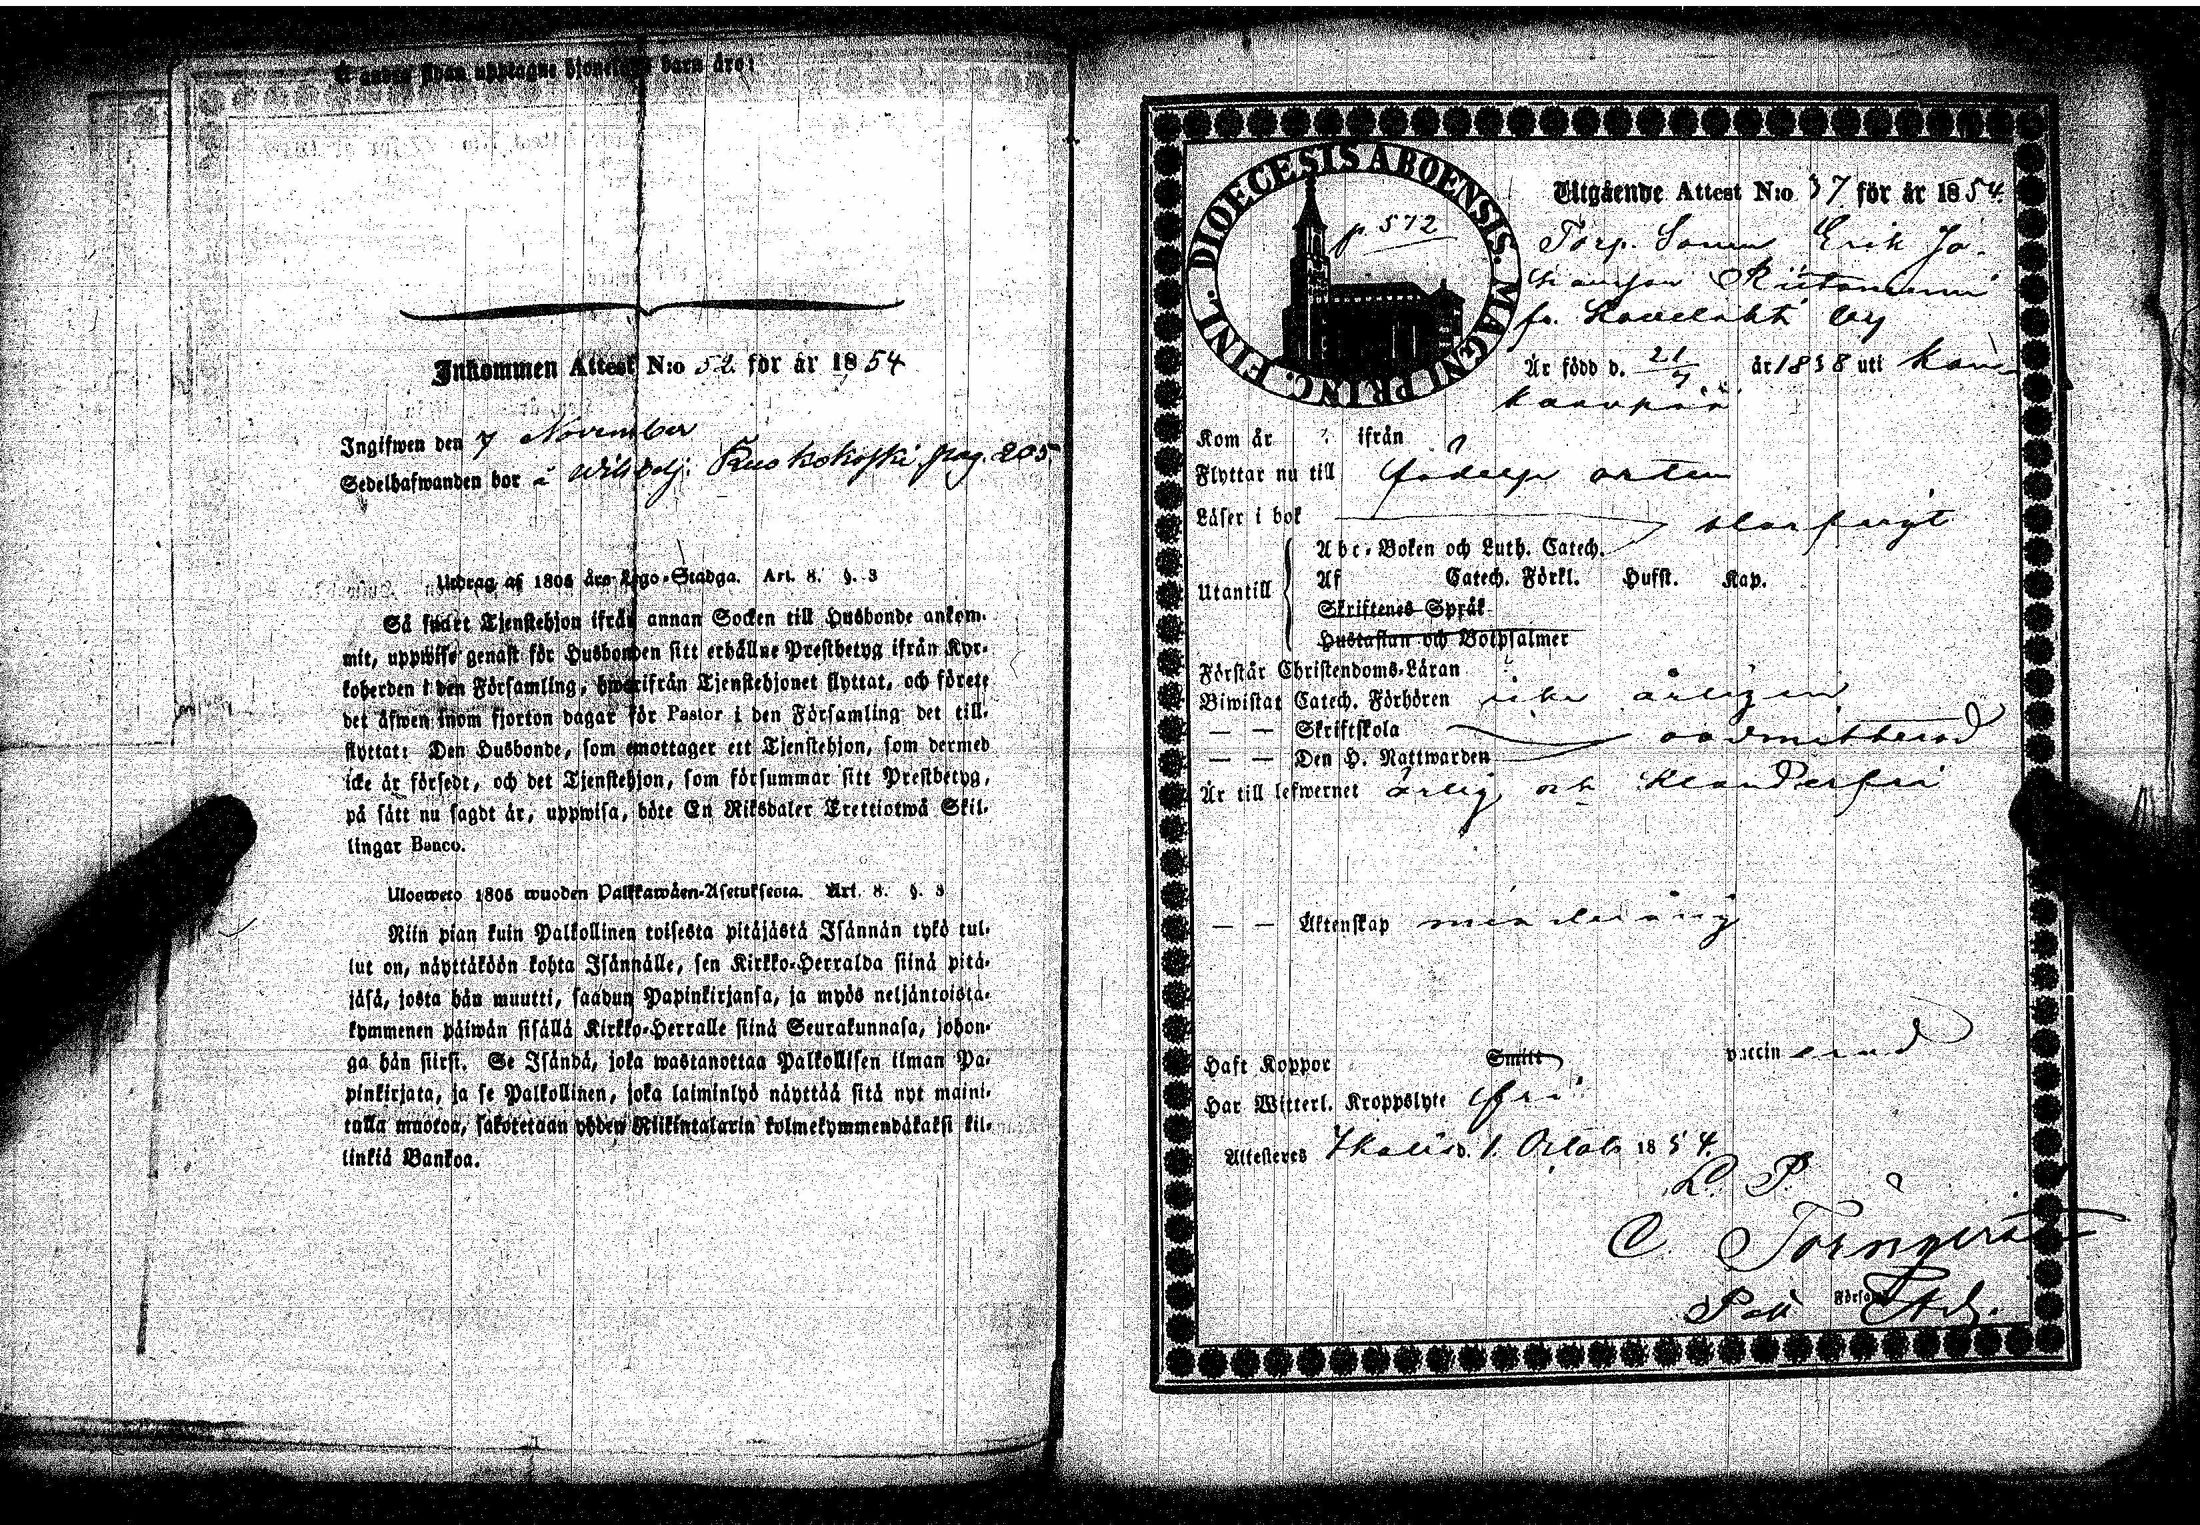 Å andra sidan upptagne hjonelags barn äro:
Inkommen Attest N:o 52 för år 1854
Ingifwen den 7 November
Sedelhafwanden bor å Kuokokoski pag. 205
Utdrag af 1805 års Lego-Stadga. Art. 8. §. 3
Så snart Tjenstehjon ifrån annan Socken till Husbonde ankom-
mit, uppwise genast för Husbonden sitt erhållne Prestbetyg ifrån Kyr-
koherden i den Församling, hwarifrån Tjenstehjonet flyttat, och förete
det äfwen inom fjorton dagar för Pastor i den Församling det till-
flyttat: Den Husbonde, som emottager ett Tjenstehjon, som dermed
icke är försedt, och det Tjenstehjon, som försummar sitt Prestbetyg,
på sätt nu sagdt är, uppwisa, böte En Riksdaler Trettiotwå Skil-
lingar Banco.
Ulosweto 1805 wuoden Palkkawäen-Asetuksesta. Art. 8. §. 3
Niin pian kuin Palkollinen toisesta pitäjästä Isännän tykö tul-
lut on, näyttäköön kohta Isännälle, sen Kirkko-Herralda siinä pitä-
jäsä, josta hän muutti, saadun Papinkirjansa, ja myös neljäntoista-
kymmenen päiwän sisällä Kirkko-Herralle siinä Seurakunnasa, johon-
ga hän siirst. Se Isändä, joka wastanottaa Palkollisen ilman Pa-
pinkirjata, ja se Palkollinen, joka laiminlyö näyttää sitä nyt maini-
tulla muotoa, sakotetaan yhden Riikintalarin kolmekymmendäkaksi kil-
linkiä Bankoa.
DIOECESIS ABOENSIS. MAGNI PRINC. FINL.
p 572
Utgående Attest N:o 37 för år 1854.
Torp. Sonen Erik Jo-
hansson
fr. by
Är född d. 21/7 år 1838 uti Kan-
kaanpää
Kom år ? ifrån ?
Flyttar nu till födelse orten
Läser i bok
Abc-Boken och Luth. Catech.
Utantill Af Catech. Förkl. Husst. Kap.
Skriftenes Språk
Hustaflan och Botpsalmer
Förstår Christendoms-Läran
Biwistat Catech. Förhören icke årligen
— — Skriftskola oadmitterad
— — Den H. Nattwarden
Är till lefwernet ärlig och klanderfri
— — Äktenskap minderårig
Haft Koppor Smitt vaccinerad
Har Witterl. Kroppslyte fri
Attesteras Ikalis d. 1 Octob 1854.
L. P.
C. Törnqvist
Församl.